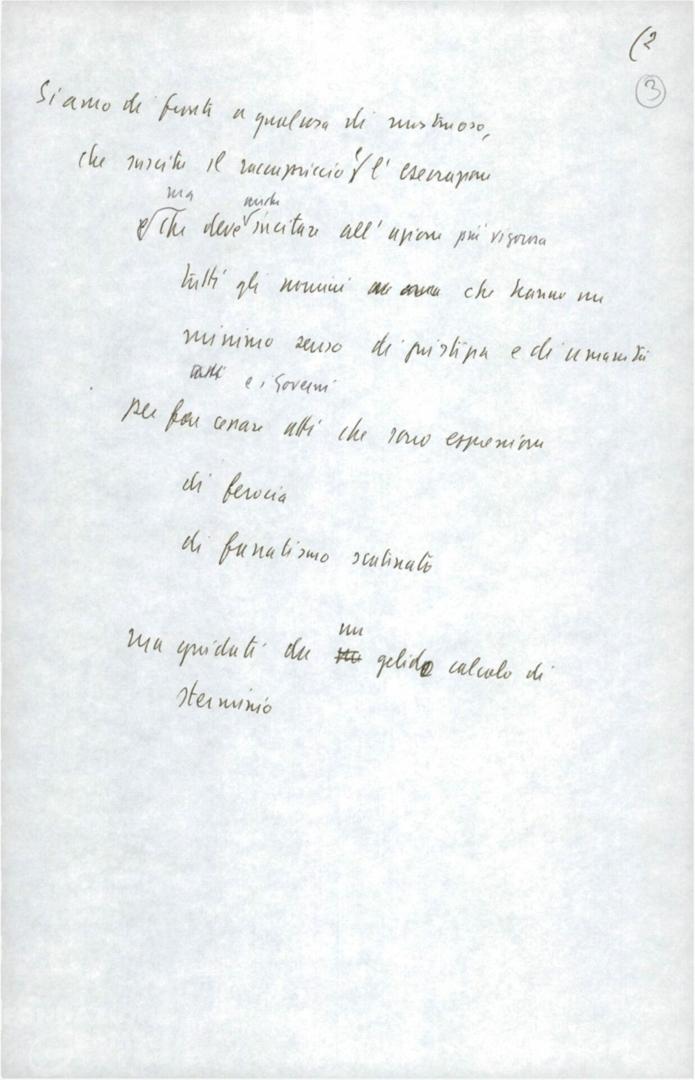 (2
3
Siamo di fronte a qualcosa di mostruoso,
che suscita il raccapriccio e l'esecrazione
ma anche
e che deve incitare all'azione più vigorosa
tutti gli uomini che hanno un
minimo senso di giustizia e di umanità
tutti e i Governi
per far cessare atti che sono espressione
di ferocia
di fanatismo scatenato
un
ma guidati da gelido calcolo di
sterminio